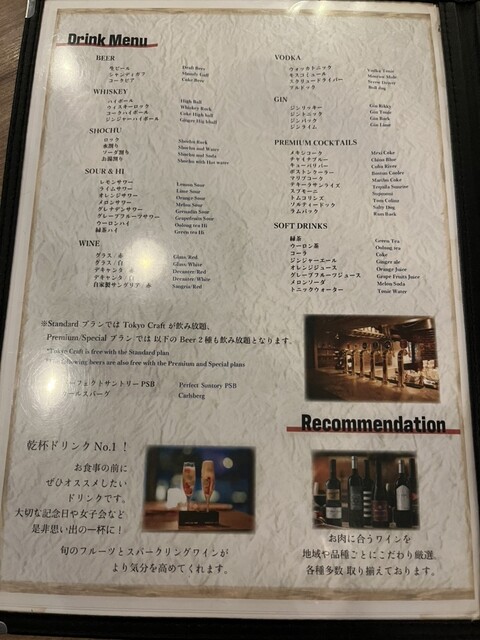 Drink Menu
BEER
生ビール Draft Beer
シャンディガフ Shandy Gaff
コークビア Coke Beer
WHISKEY
ハイボール High Ball
ウィスキーロック Whiskey Rock
コークハイボール Coke High Ball
ジンジャーハイボール Ginger Hi Ball
SHOCHU
ロック Shochu Rock
水割り Shochu and Water
ソーダ割り Shochu and Soda
お湯割り Shochu with Hot water
SOUR & HI
レモンサワー Lemon Sour
ライムサワー Lime Sour
オレンジサワー Orange Sour
メロンサワー Melon Sour
グレナデンサワー Grenadin Sour
グレープフルーツサワー Grapefruits Sour
ウーロンハイ Oolong tea Hi
緑茶ハイ Green tea Hi
WINE
グラス/赤 Glass/Red
グラス/白 Glass/White
デキャンタ/赤 Decanter/Red
デキャンタ/白 Decanter/White
自家製サングリア/赤 Sangria/Red
VODKA
ウォッカトニック Vodka Tonic
モスコミュール Moscow Mule
スクリュードライバー Screw Driver
ブルドック Bull dog
GIN
ジンリッキー Gin Rikky
ジントニック Gin Tonic
ジンバック Gin Back
ジンライム Gin Lime
PREMIUM COCKTAILS
メキシコーク Mexi Coke
チャイナブルー China Blue
キューバリバー Cuba River
ボストンクーラー Boston Cooler
マリブコーク Maribu Coke
テキーラサンライズ Tequila Sunrise
スプモーニ Supmoni
トムコリンズ Tom Colins
ソルティードック Salty Dog
ラムバック Ram Back
SOFT DRINKS
緑茶 Green Tea
ウーロン茶 Oolong tea
コーラ Coke
ジンジャーエール Ginger ale
オレンジジュース Orange Juice
グレープフルーツジュース Grape Fruits Juice
メロンソーダ Melon Soda
トニックウォーター Tonic Water
※Standard プランでは Tokyo Craft が飲み放題、
Premium/Special プラン では 以下の Beer 2 種も飲み放題となります。
*Tokyo Craft is free with the Standard plan
following beers are also free with the Premium and Special plans
ーフェクトサントリー PSB Perfect Suntory PSB
ールスバーグ Carlsberg
Recommendation
乾杯ドリンク No.1 !
お食事の前に
ぜひオススメしたい
ドリンクです。
大切な記念日や女子会など
是非思い出の一杯に！
旬のフルーツとスパークリングワインが
より気分を高めてくれます。
お肉に合うワインを
地域や品種ごとにこだわり厳選。
各種多数 取り揃えております。